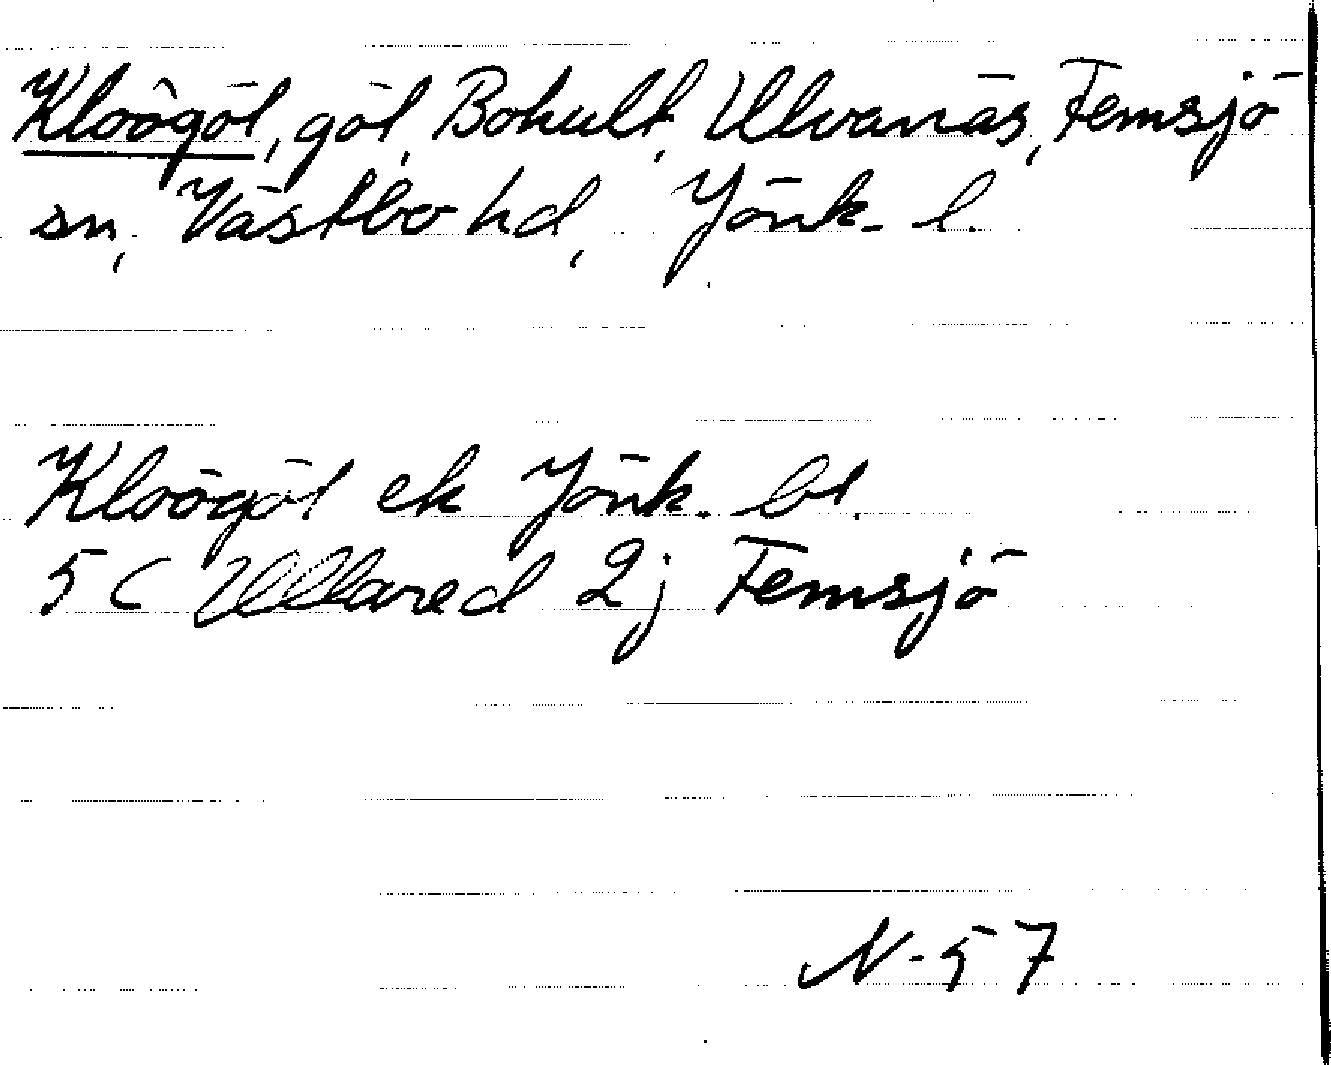 Kloögöl, göl, Bohult, Ulvanäs, Femsjö
sn, Västbo hd, Jönk. l.
Kloögöl ek Jönk. bl.
5C Ullared 2j Femsjö
N-57